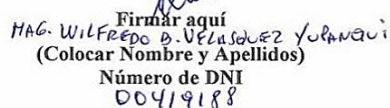 Firmar aquí
MAG. WILFREDO B. VELASQUEZ YUPANQUI
(Colocar Nombre y Apellidos)
Número de DNI
00419188